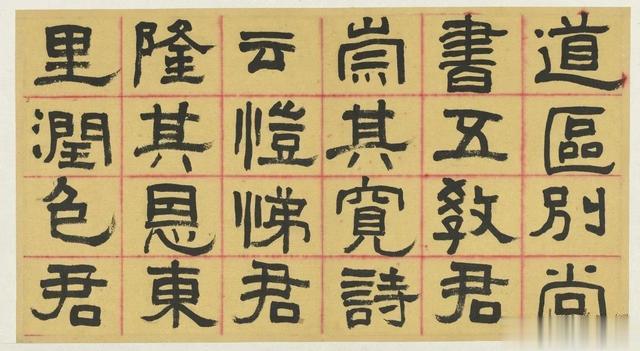 道區別尚
書五教君
崇其寬詩
云愷悌君
隆其恩東
里潤色君